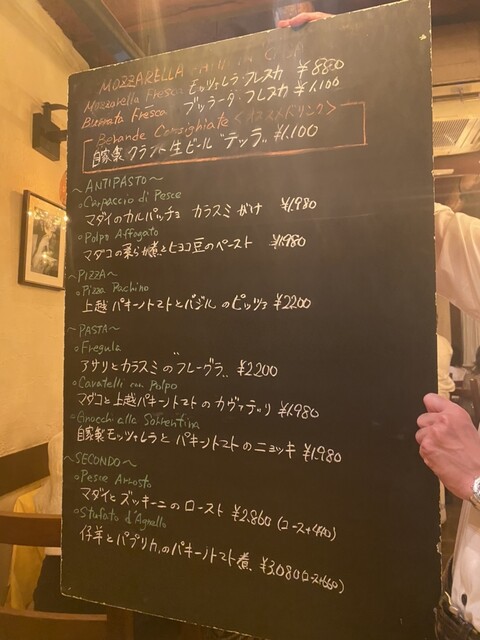 MOZZARELLA
Mozzarella Fresca モッツァレラ・フレスカ ¥880
Burrata Fresca ブッラータ・フレスカ ¥1,100
Bevande Consighiate <オススメドリンク>
自家製クラフト生ビール "テッラ" ¥1,100
~ANTIPASTO~
○Carpaccio di Pesce
マダイのカルパッチョ カラスミがけ ¥1,980
○Polpo Affogato
マダコの柔らか煮とヒヨコ豆のペースト ¥1,980
~PIZZA~
○Pizza Pachino
上越パキーノトマトとバジルのピッツァ ¥2200
~PASTA~
○Fregula
アサリとカラスミの"フレーグラ" ¥2200
○Cavatelli con Polpo
マダコと上越パキーノトマトのカヴァテッリ ¥1,980
○Gnocchi alla Sorrentina
自家製モッツァレラとパキーノトマトのニョッキ ¥1,980
~SECONDO~
○Pesce Arrosto
マダイとズッキーニのロースト ¥2,860 (コース+440)
○Stufato d'Agnello
仔羊とパプリカのパキーノトマト煮 ¥3,080 (コース+660)